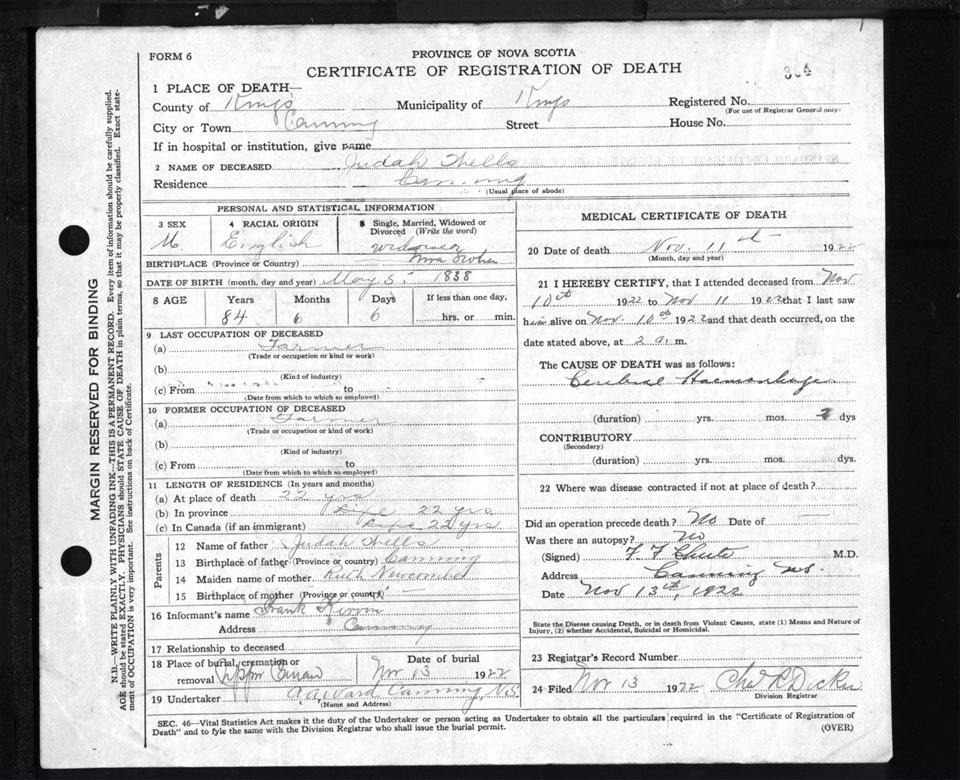 FORM 6
PROVINCE OF NOVA SCOTIA
CERTIFICATE OF REGISTRATION OF DEATH
304
1 PLACE OF DEATH—
County of Kings Municipality of Kings Registered No.
(For use of Registrar General only)
City or Town Canning Street House No.
If in hospital or institution, give name
2 NAME OF DECEASED Judah Wells
Residence Canning
(Usual place of abode)
PERSONAL AND STATISTICAL INFORMATION
3 SEX M. 4 RACIAL ORIGIN English 5 Single, Married, Widowed or Divorced (Write the word) Widower
BIRTHPLACE (Province or Country) Nova Scotia
DATE OF BIRTH (month, day and year) May 5, 1838
8 AGE Years Months Days If less than one day,
84 6 6 hrs. or min.
9 LAST OCCUPATION OF DECEASED
(a) Farmer
(Trade or occupation or kind or work)
(b)
(Kind of industry)
(c) From to
(Date from which to which so employed)
10 FORMER OCCUPATION OF DECEASED
(a) Farmer
(Trade or occupation or kind of work)
(b)
(Kind of industry)
(c) From to
(Date from which to which so employed)
11 LENGTH OF RESIDENCE (In years and months)
(a) At place of death 22 yrs
(b) In province Life 22 yrs
(c) In Canada (if an immigrant) Life 22 yrs
Parents
12 Name of father Judah Wells
13 Birthplace of father (Province or country) Canning
14 Maiden name of mother Ruth Newcombe
15 Birthplace of mother (Province or country) —
16 Informant's name Frank
Address Canning
17 Relationship to deceased
18 Place of burial, cremation or removal Upper Canard Date of burial Nov 13 1922
19 Undertaker Ward Canning, N.S.
(Name and Address)
MEDICAL CERTIFICATE OF DEATH
20 Date of death Nov. 11 1922
(Month, day and year)
21 I HEREBY CERTIFY, that I attended deceased from Nov
10th 1922 to Nov 11 1922 that I last saw
him alive on Nov. 10th 1922 and that death occurred, on
the date stated above, at 2 a. m.
The CAUSE OF DEATH was as follows:
Cerebral Haemorrhage
(duration) yrs. mos. 2 dys
CONTRIBUTORY
(Secondary)
(duration) yrs. mos. dys.
22 Where was disease contracted if not at place of death?
Did an operation precede death? No Date of —
Was there an autopsy? No
(Signed) F F Chute M.D.
Address Canning N.S.
Date Nov 13th, 1922
State the Disease causing Death, or in death from Violent Causes, state (1) Means and Nature of
Injury, (2) whether Accidental, Suicidal or Homicidal.
23 Registrar's Record Number
24 Filed Nov 13 1922 Chas R Dickie
Division Registrar
SEC. 46—Vital Statistics Act makes it the duty of the Undertaker or person acting as Undertaker to obtain all the particulars required in the "Certificate of Registration of
Death" and to fyle the same with the Division Registrar who shall issue the burial permit.
(OVER)
MARGIN RESERVED FOR BINDING
N.B.—WRITE PLAINLY WITH UNFADING INK—THIS IS A PERMANENT RECORD. Every item of information should be carefully supplied.
AGE should be stated EXACTLY. PHYSICIANS should STATE CAUSE OF DEATH in plain terms, so that it may be properly classified. Exact state-
ment of OCCUPATION is very important. See instructions on back of Certificate.